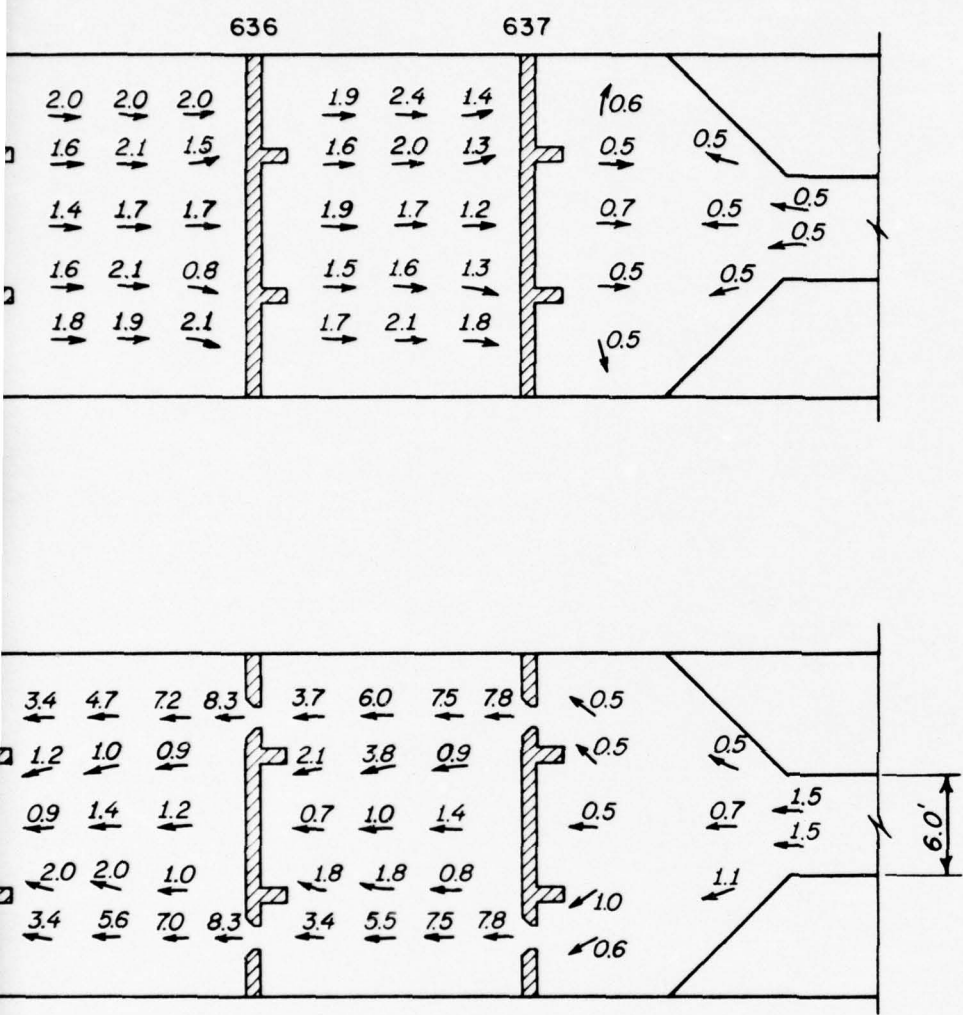 636 637
2.0 2.0 2.0 1.9 2.4 1.4 0.6
1.6 2.1 1.5 1.6 2.0 1.3 0.5 0.5
1.4 1.7 1.7 1.9 1.7 1.2 0.7 0.5 0.5
0.5
1.6 2.1 0.8 1.5 1.6 1.3 0.5 0.5
1.8 1.9 2.1 1.7 2.1 1.8 0.5
3.4 4.7 7.2 8.3 3.7 6.0 7.5 7.8 0.5
1.2 1.0 0.9 2.1 3.8 0.9 0.5 0.5
0.9 1.4 1.2 0.7 1.0 1.4 0.5 0.7 1.5
1.5
6.0'
2.0 2.0 1.0 1.8 1.8 0.8 1.0 1.1
3.4 5.6 7.0 8.3 3.4 5.5 7.5 7.8 0.6